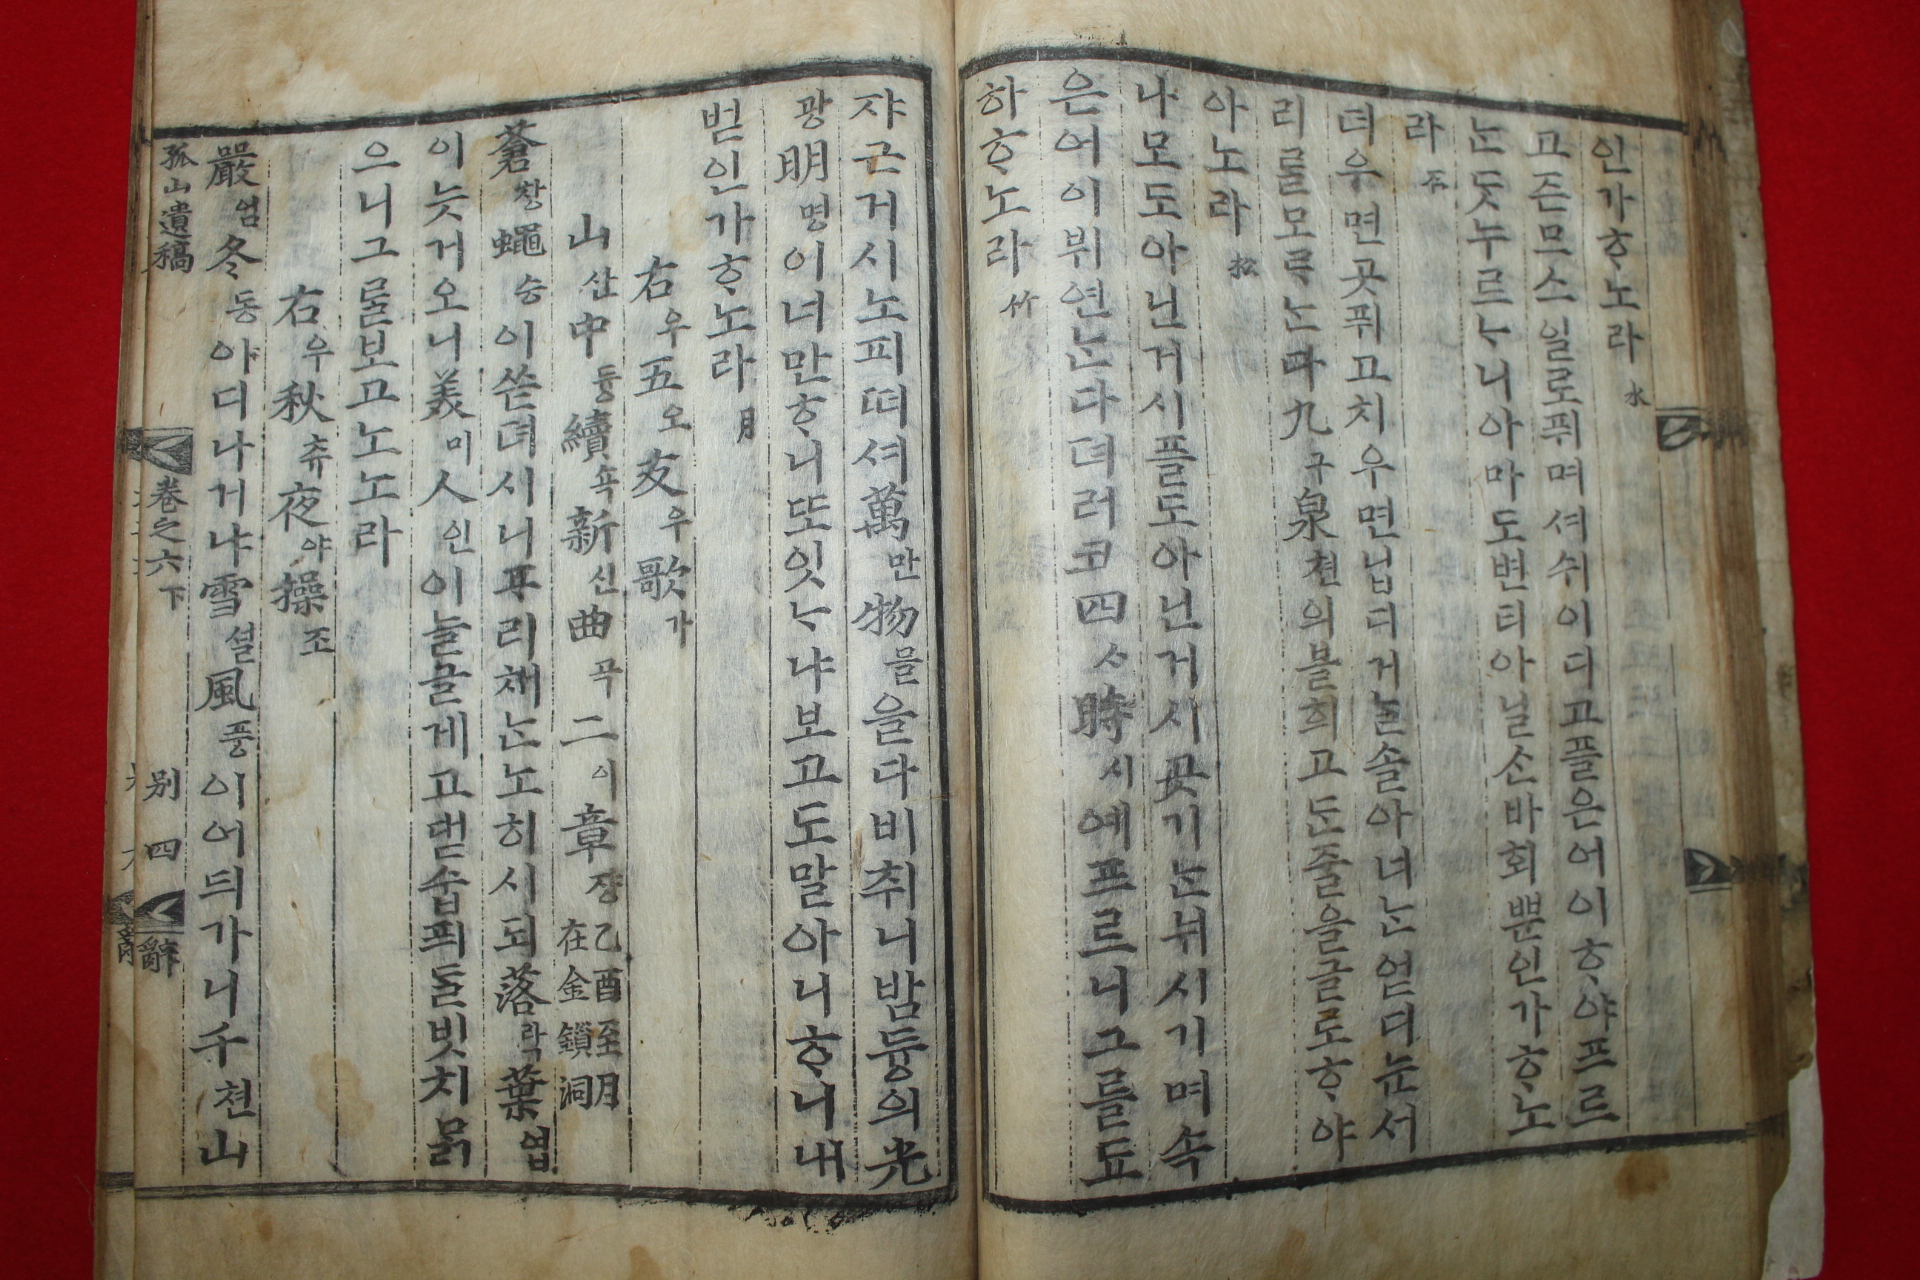 인가ᄒᆞ노라 水
고즌므스일로퓌며셔쉬이디고플은어이ᄒᆞ야프르
ᄂᆞᆫᄃᆞᆺ누르ᄂᆞ니아마도변티아닐ᄉᆞᆫ바회ᄲᅮᆫ인가ᄒᆞ노
라 石
뎌우면곳퓌고치우면닙디거ᄂᆞᆯ솔아너ᄂᆞᆫ얻디눈서
리ᄅᆞᆯ모ᄅᆞᄂᆞᆫ다九구泉쳔의블희고ᄃᆞᆫ줄을글로ᄒᆞ야
아노라 松
나모도아닌거시플도아닌거시곳기ᄂᆞᆫ뉘시기며속
은어이뷔연ᄂᆞᆫ다뎌러코四ᄉᆞ時시예프르니그를됴
하ᄒᆞ노라 竹
쟈근거시노피ᄯᅥ셔萬만物믈을다비취니밤듕의光
광明명이너만ᄒᆞ니ᄯᅩ잇ᄂᆞ냐보고도말아니ᄒᆞ니내
벋인가ᄒᆞ노라 月
右우五오友우歌가
山산中듕續쇽新신曲곡二이章쟝 乙酉至月 在金鎖洞
蒼창蠅승이ᄡᅳᆮ뎌시니ᄑᆞ리채ᄂᆞᆫ노히시되落락葉엽
이늣거오니美미人인이늘글게고댇숩픠ᄃᆞᆯ빗치ᄆᆞᆰ
으니그ᄅᆞᆯ보고노노라
右우秋츄夜야操조
嚴엄冬동이디나거냐雪셜風풍이어듸가니千쳔山
孤山遺稿 卷之六下 別 四 辭